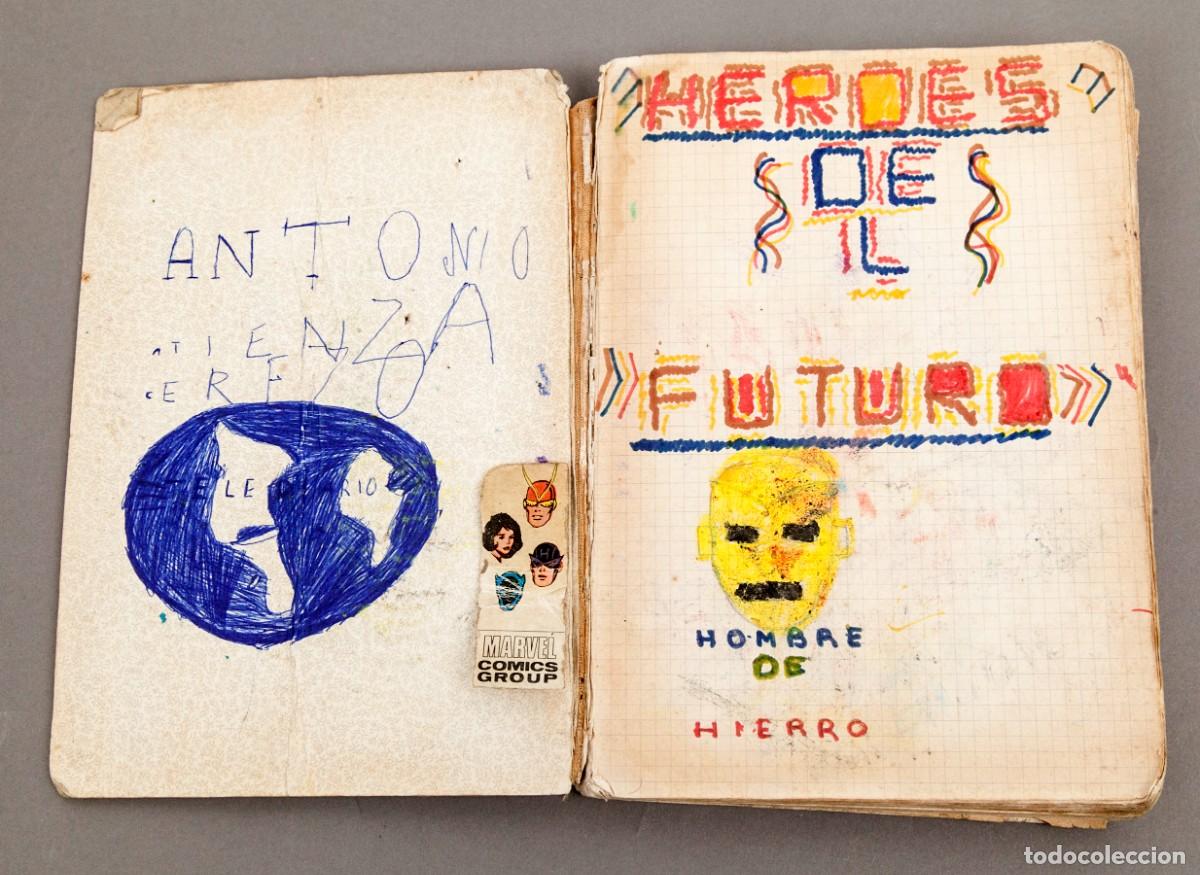 ANTONIO
ATIENZA
CEREZO
TELE DIARIO
H
MARVEL
COMICS
GROUP
HEROES
DE
L
FUTURO
HOMBRE
DE
HIERRO
todocoleccion